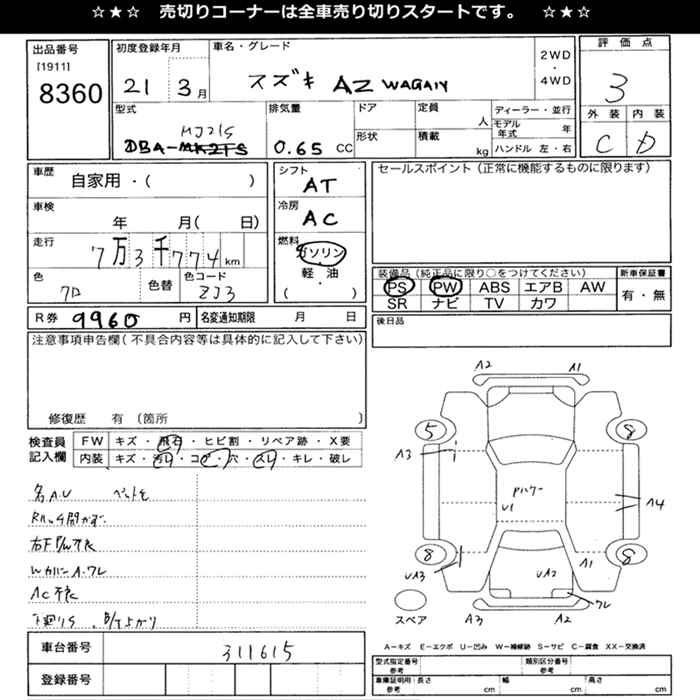 ☆★☆ 売切りコーナーは全車売り切りスタートです。 ☆★☆
出品番号
[1911]
8360
初度登録年月
21 3月
車名・グレード
スズキ AZ WAGON
2WD
・
4WD
評価点
3
外装 内装
C D
型式
MJ21S
DBA-MK21S
排気量
0.65 CC
ドア
形状
定員
人
積載
kg
ディーラー・並行
モデル年式 年
ハンドル 左・右
車歴
自家用・( )
車検
年 月( 日)
走行
7万3千774km
色
クロ
色替
色コード
ZJ3
シフト
AT
冷房
AC
燃料
ガソリン
軽・油
( )
セールスポイント(正常に機能するものに限ります)
装備品(純正品に限り○をつけてください)
PS PW ABS エアB AW
SR ナビ TV カワ
新車保証書
有・無
後日品
R券 9960 円
名変通知期限 月 日
注意事項申告欄(不具合内容等は具体的に記入して下さい)
修復歴 有 (箇所 )
検査員記入欄
FW キズ・飛石・ヒビ割・リペア跡・X要
内装 キズ・汚れ・コゲ・穴・スレ・キレ・破レ
AC不良
下廻りS
車台番号 311615
登録番号
A2 A1
5 8
A3
U1
A4
8 8
UA3
A1
UA2
ワレ
スペア
A3 A2
A-キズ E-エクボ U-凹み W-補修跡 S-サビ C-腐食 XX-交換済
型式指定番号 参考
類別区分番号 参考
車庫証明用 参考
長さ cm
幅 cm
高さ cm